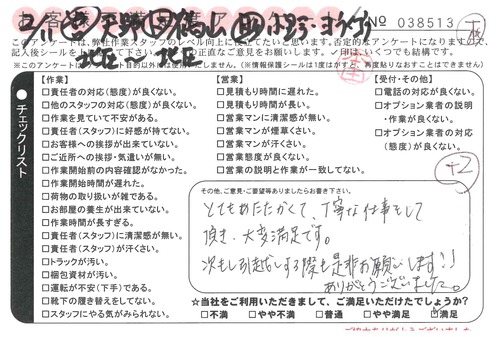 № 038513
このアンケートは、弊社作業スタッフのレベル向上に役立てたいと思います。否定的なアンケートになりますので、
記入後シールをして
正直なご意見をお願いします。
印は、いくつでも結構です。
再度貼りなおすことはできません)
チェックリスト
【作業】
□責任者の対応(態度)が良くない。
□他のスタッフの対応(態度)が良くない。
□作業を見ていて不安がある。
□責任者(スタッフ)に好感が持てない。
□お客様への挨拶が出来ていない。
□ご近所への挨拶・気遣いが無い。
□作業開始前の内容確認がなかった。
□作業開始時間が遅れた。
□荷物の取り扱いが雑である。
□お部屋の養生が出来ていない。
□作業時間が長すぎる。
□責任者(スタッフ)に清潔感が無い。
□責任者(スタッフ)が汗くさい。
□トラックが汚い。
□梱包資材が汚い。
□運転が不安(下手)である。
□靴下の履き替えをしてない。
□スタッフにやる気がみられない。
【営業】
□見積もり時間に遅れた。
□見積もり時間が長い。
□営業マンに清潔感が無い。
□営業マンが煙草くさい。
□営業マンが汗くさい。
□営業態度が良くない。
□営業の説明と作業が一致してない。
【受付・その他】
□電話の対応が良くない。
□オプション業者の説明
・作業が良くない。
□オプション業者の対応
(態度)が良くない。
+2
その他、ご意見・ご要望等ありましたらお書き下さい。
とてもあたたかくて、丁寧な仕事をして
頂き、大変満足です。
次もし引越しする際も是非お願いします!!
ありがとうございました。
☆当社をご利用いただきまして、ご満足いただけたでしょうか?
□不満 □やや不満 □普通 □やや満足 ☑満足
ご協力ありがとうございました